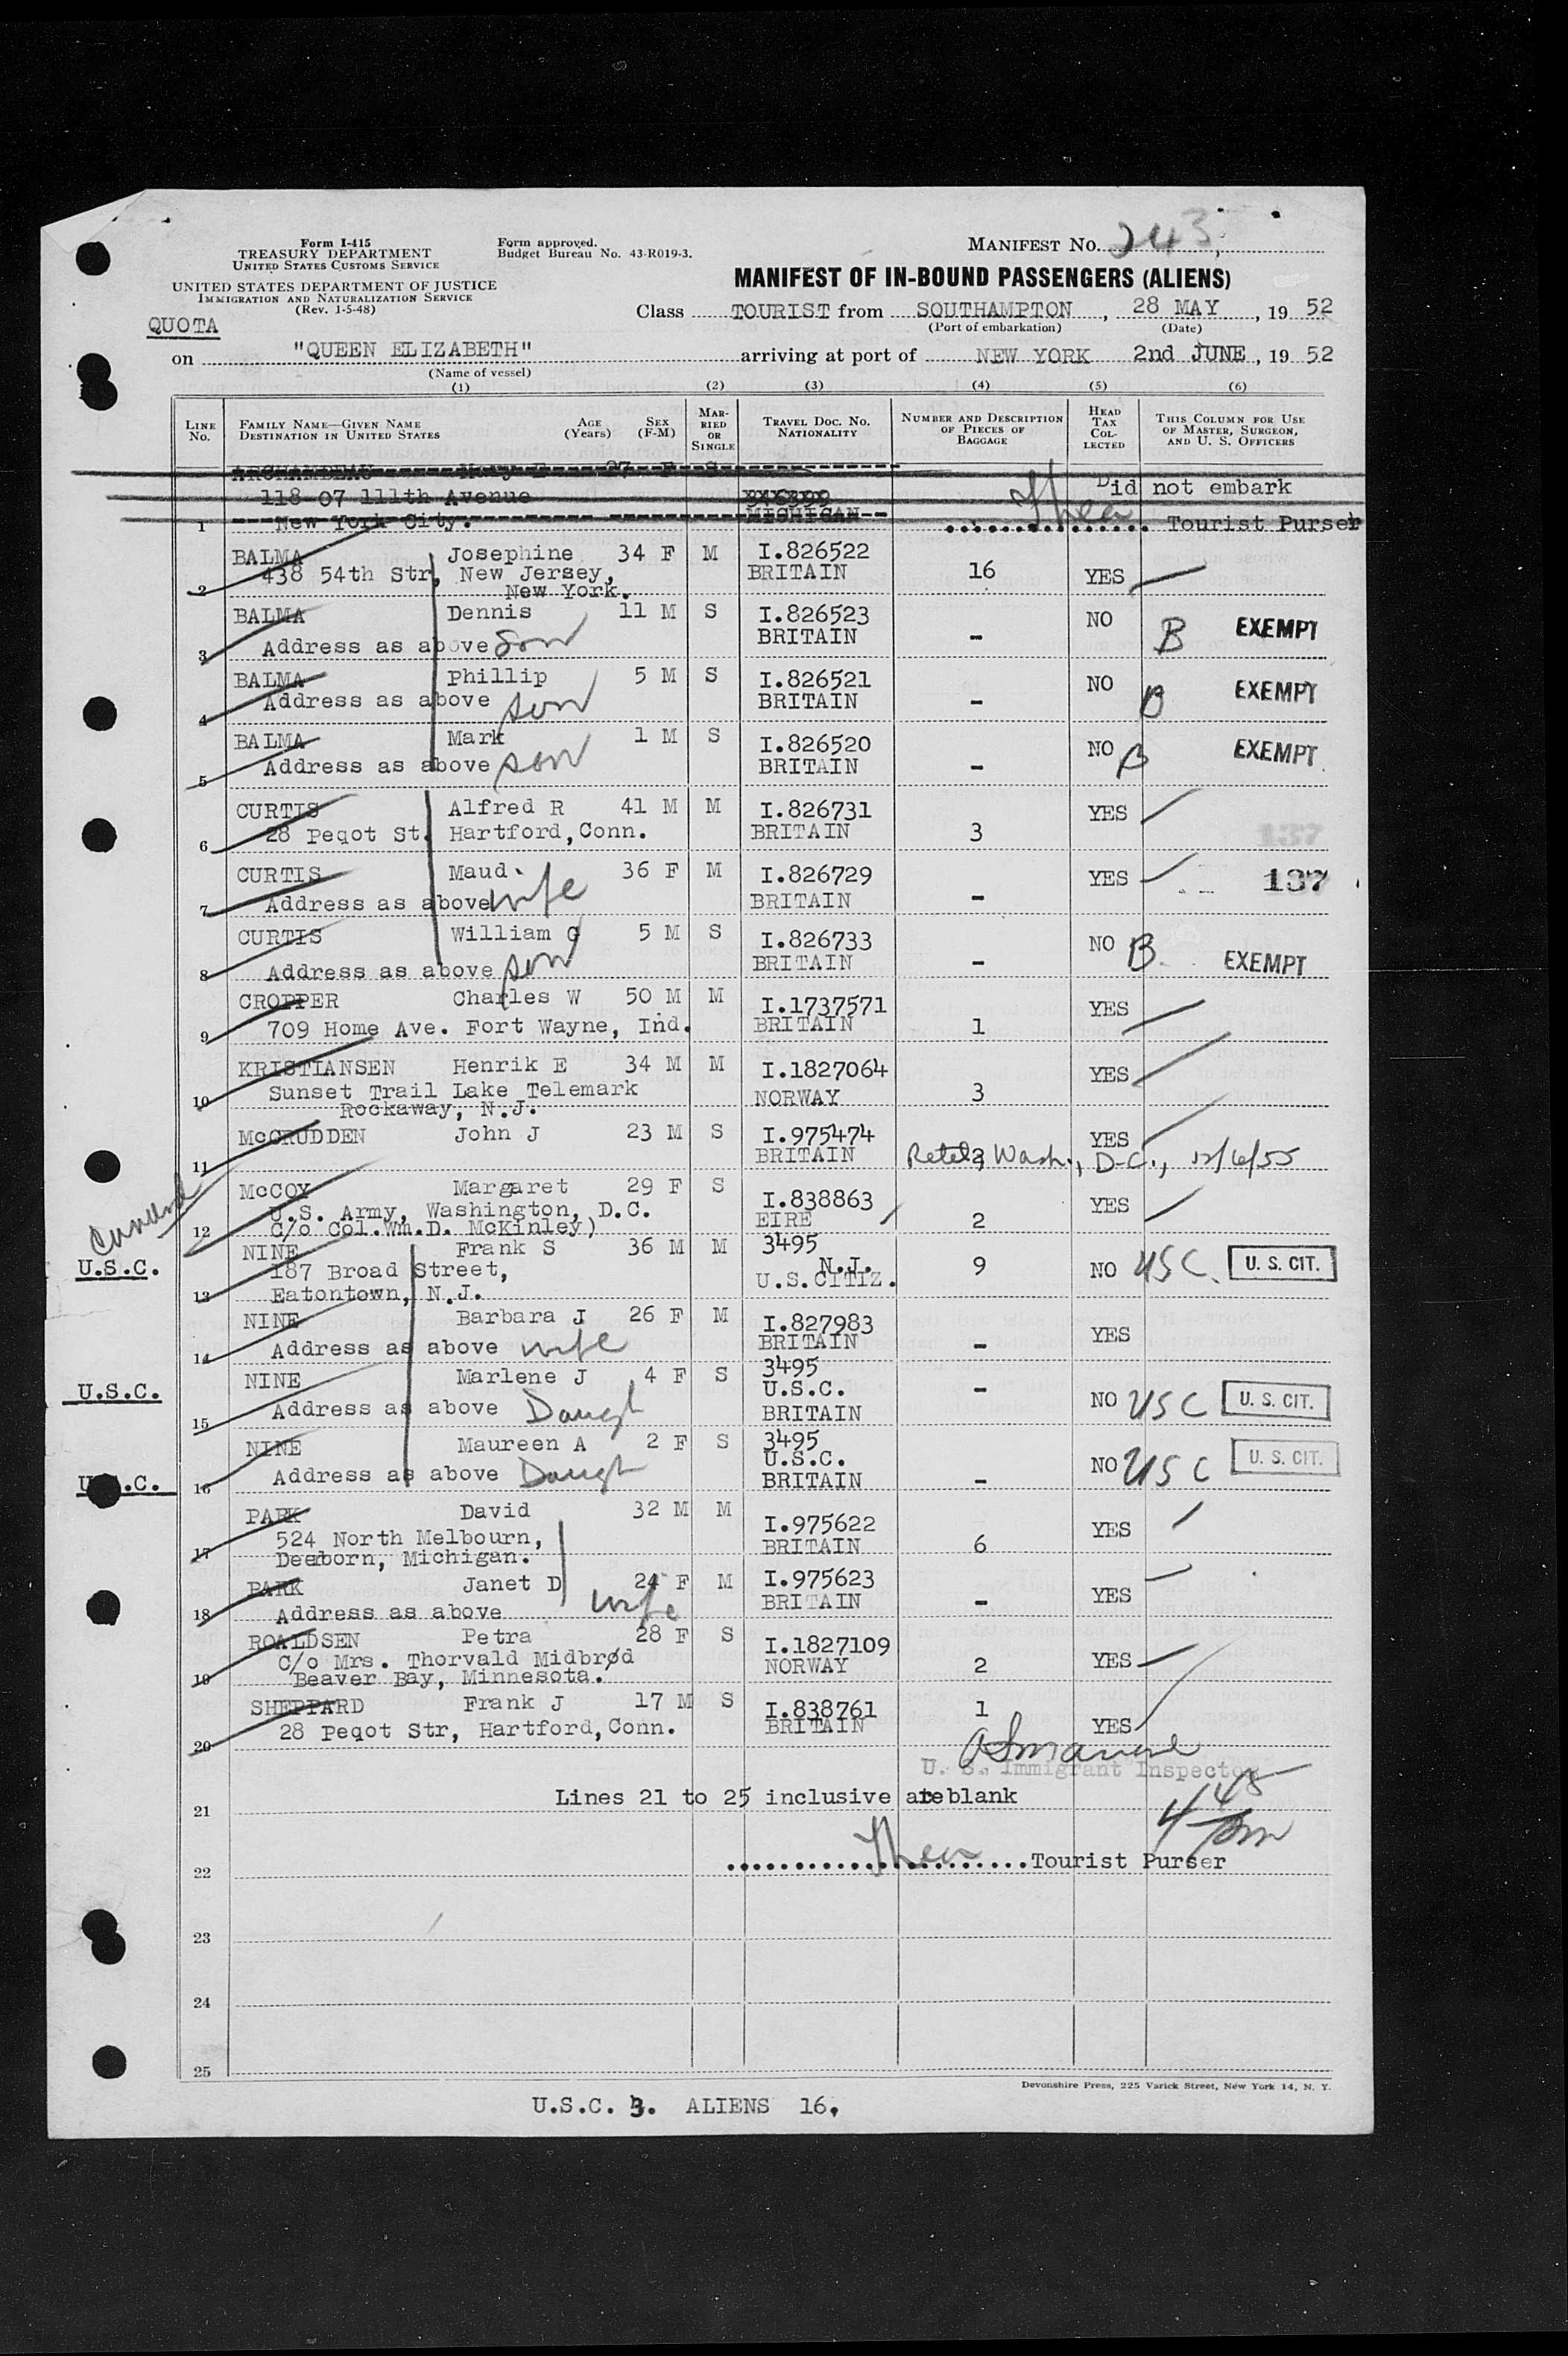 Form I-415
TREASURY DEPARTMENT
UNITED STATES CUSTOMS SERVICE
UNITED STATES DEPARTMENT OF JUSTICE
IMMIGRATION AND NATURALIZATION SERVICE
(Rev. 1-5-48)
Form approved.
Budget Bureau No. 43-R019-3.
MANIFEST NO. 243
MANIFEST OF IN-BOUND PASSENGERS (ALIENS)
QUOTA
Class TOURIST from SOUTHAMPTON, 28 MAY, 19 52
(Port of embarkation) (Date)
on "QUEEN ELIZABETH" arriving at port of NEW YORK 2nd JUNE, 19 52
(Name of vessel)
(1) (2) (3) (4) (5) (6)
LINE No. FAMILY NAME—GIVEN NAME DESTINATION IN UNITED STATES AGE (Years) SEX (F-M) MARRIED OR SINGLE TRAVEL DOC. NO. NATIONALITY NUMBER AND DESCRIPTION OF PIECES OF BAGGAGE HEAD TAX COLLECTED THIS COLUMN FOR USE OF MASTER, SURGEON, AND U. S. OFFICERS
ARCHAMBEAU Mary 27 F S
118-07 111th Avenue Did not embark
1 New York City. MICHIGAN Tourist Purser
BALMA Josephine 34 F M I.826522
438 54th Str, New Jersey, BRITAIN 16 YES
2 New York.
BALMA Dennis 11 M S I.826523 NO
3 Address as above son BRITAIN - B EXEMPT
BALMA Phillip 5 M S I.826521 NO
4 Address as above son BRITAIN - B EXEMPT
BALMA Mark 1 M S I.826520 NO
5 Address as above son BRITAIN - B EXEMPT
CURTIS Alfred R 41 M M I.826731 YES
6 28 Peqot St. Hartford, Conn. BRITAIN 3 137
CURTIS Maud 36 F M I.826729 YES 137
7 Address as above wife BRITAIN -
CURTIS William G 5 M S I.826733 NO B.
8 Address as above son BRITAIN - EXEMPT
CROPPER Charles W 50 M M I.1737571 YES
9 709 Home Ave. Fort Wayne, Ind. BRITAIN 1
KRISTIANSEN Henrik E 34 M M I.1827064 YES
Sunset Trail Lake Telemark NORWAY 3
10 Rockaway, N.J.
McCRUDDEN John J 23 M S I.975474 YES
11 BRITAIN Wash., D.C., 12/6/55
McCOY Margaret 29 F S I.838863 YES
U.S. Army, Washington, D.C. EIRE 2
12 C/o Col.Wm.D. McKinley)
Cunard
U.S.C. NINE Frank S 36 M M 3495
187 Broad Street, N.J. 9 NO USC. U. S. CIT.
13 Eatontown, N.J. U.S.CITIZ.
NINE Barbara J 26 F M I.827983 YES
14 Address as above wife BRITAIN -
U.S.C. NINE Marlene J 4 F S 3495
U.S.C. - NO USC U. S. CIT.
15 Address as above Daugh BRITAIN
U.S.C. NINE Maureen A 2 F S 3495
U.S.C. NO USC U. S. CIT.
16 Address as above Daugh BRITAIN -
PARK David 32 M M I.975622 YES
17 524 North Melbourn, BRITAIN 6
Deerborn, Michigan.
PARK Janet D 24 F M I.975623 YES
18 Address as above wife BRITAIN -
ROALDSEN Petra 28 F S I.1827109
C/o Mrs. Thorvald Midbrød NORWAY 2 YES
19 Beaver Bay, Minnesota.
SHEPPARD Frank J 17 M S I.838761 1
20 28 Peqot Str, Hartford, Conn. BRITAIN YES
U. S. Immigrant Inspector
Lines 21 to 25 inclusive are blank
21
4 45 pm
Tourist Purser
22
23
24
25
Devonshire Press, 225 Varick Street, New York 14, N. Y.
U.S.C. 3. ALIENS 16.